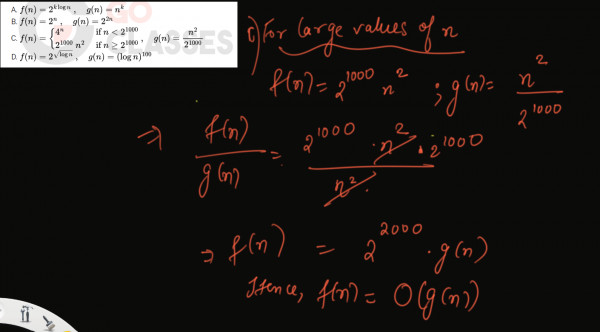 A. f(n) = 2^{k log n}, g(n) = n^k
B. f(n) = 2^n, g(n) = 2^{2n}
C. f(n) = { 4^n if n < 2^{1000}
2^{1000} n^2 if n ≥ 2^{1000} , g(n) = n^2 / 2^{1000}
D. f(n) = 2^{√log n}, g(n) = (log n)^{100}
GO
CLASSES
C) For large values of n
f(n) = 2^{1000} n^2 ; g(n) = n^2 / 2^{1000}
⇒ f(n) / g(n) = 2^{1000} · n^2 · 2^{1000} / n^2.
⇒ f(n) = 2^{2000} · g(n)
Hence, f(n) = O(g(n))